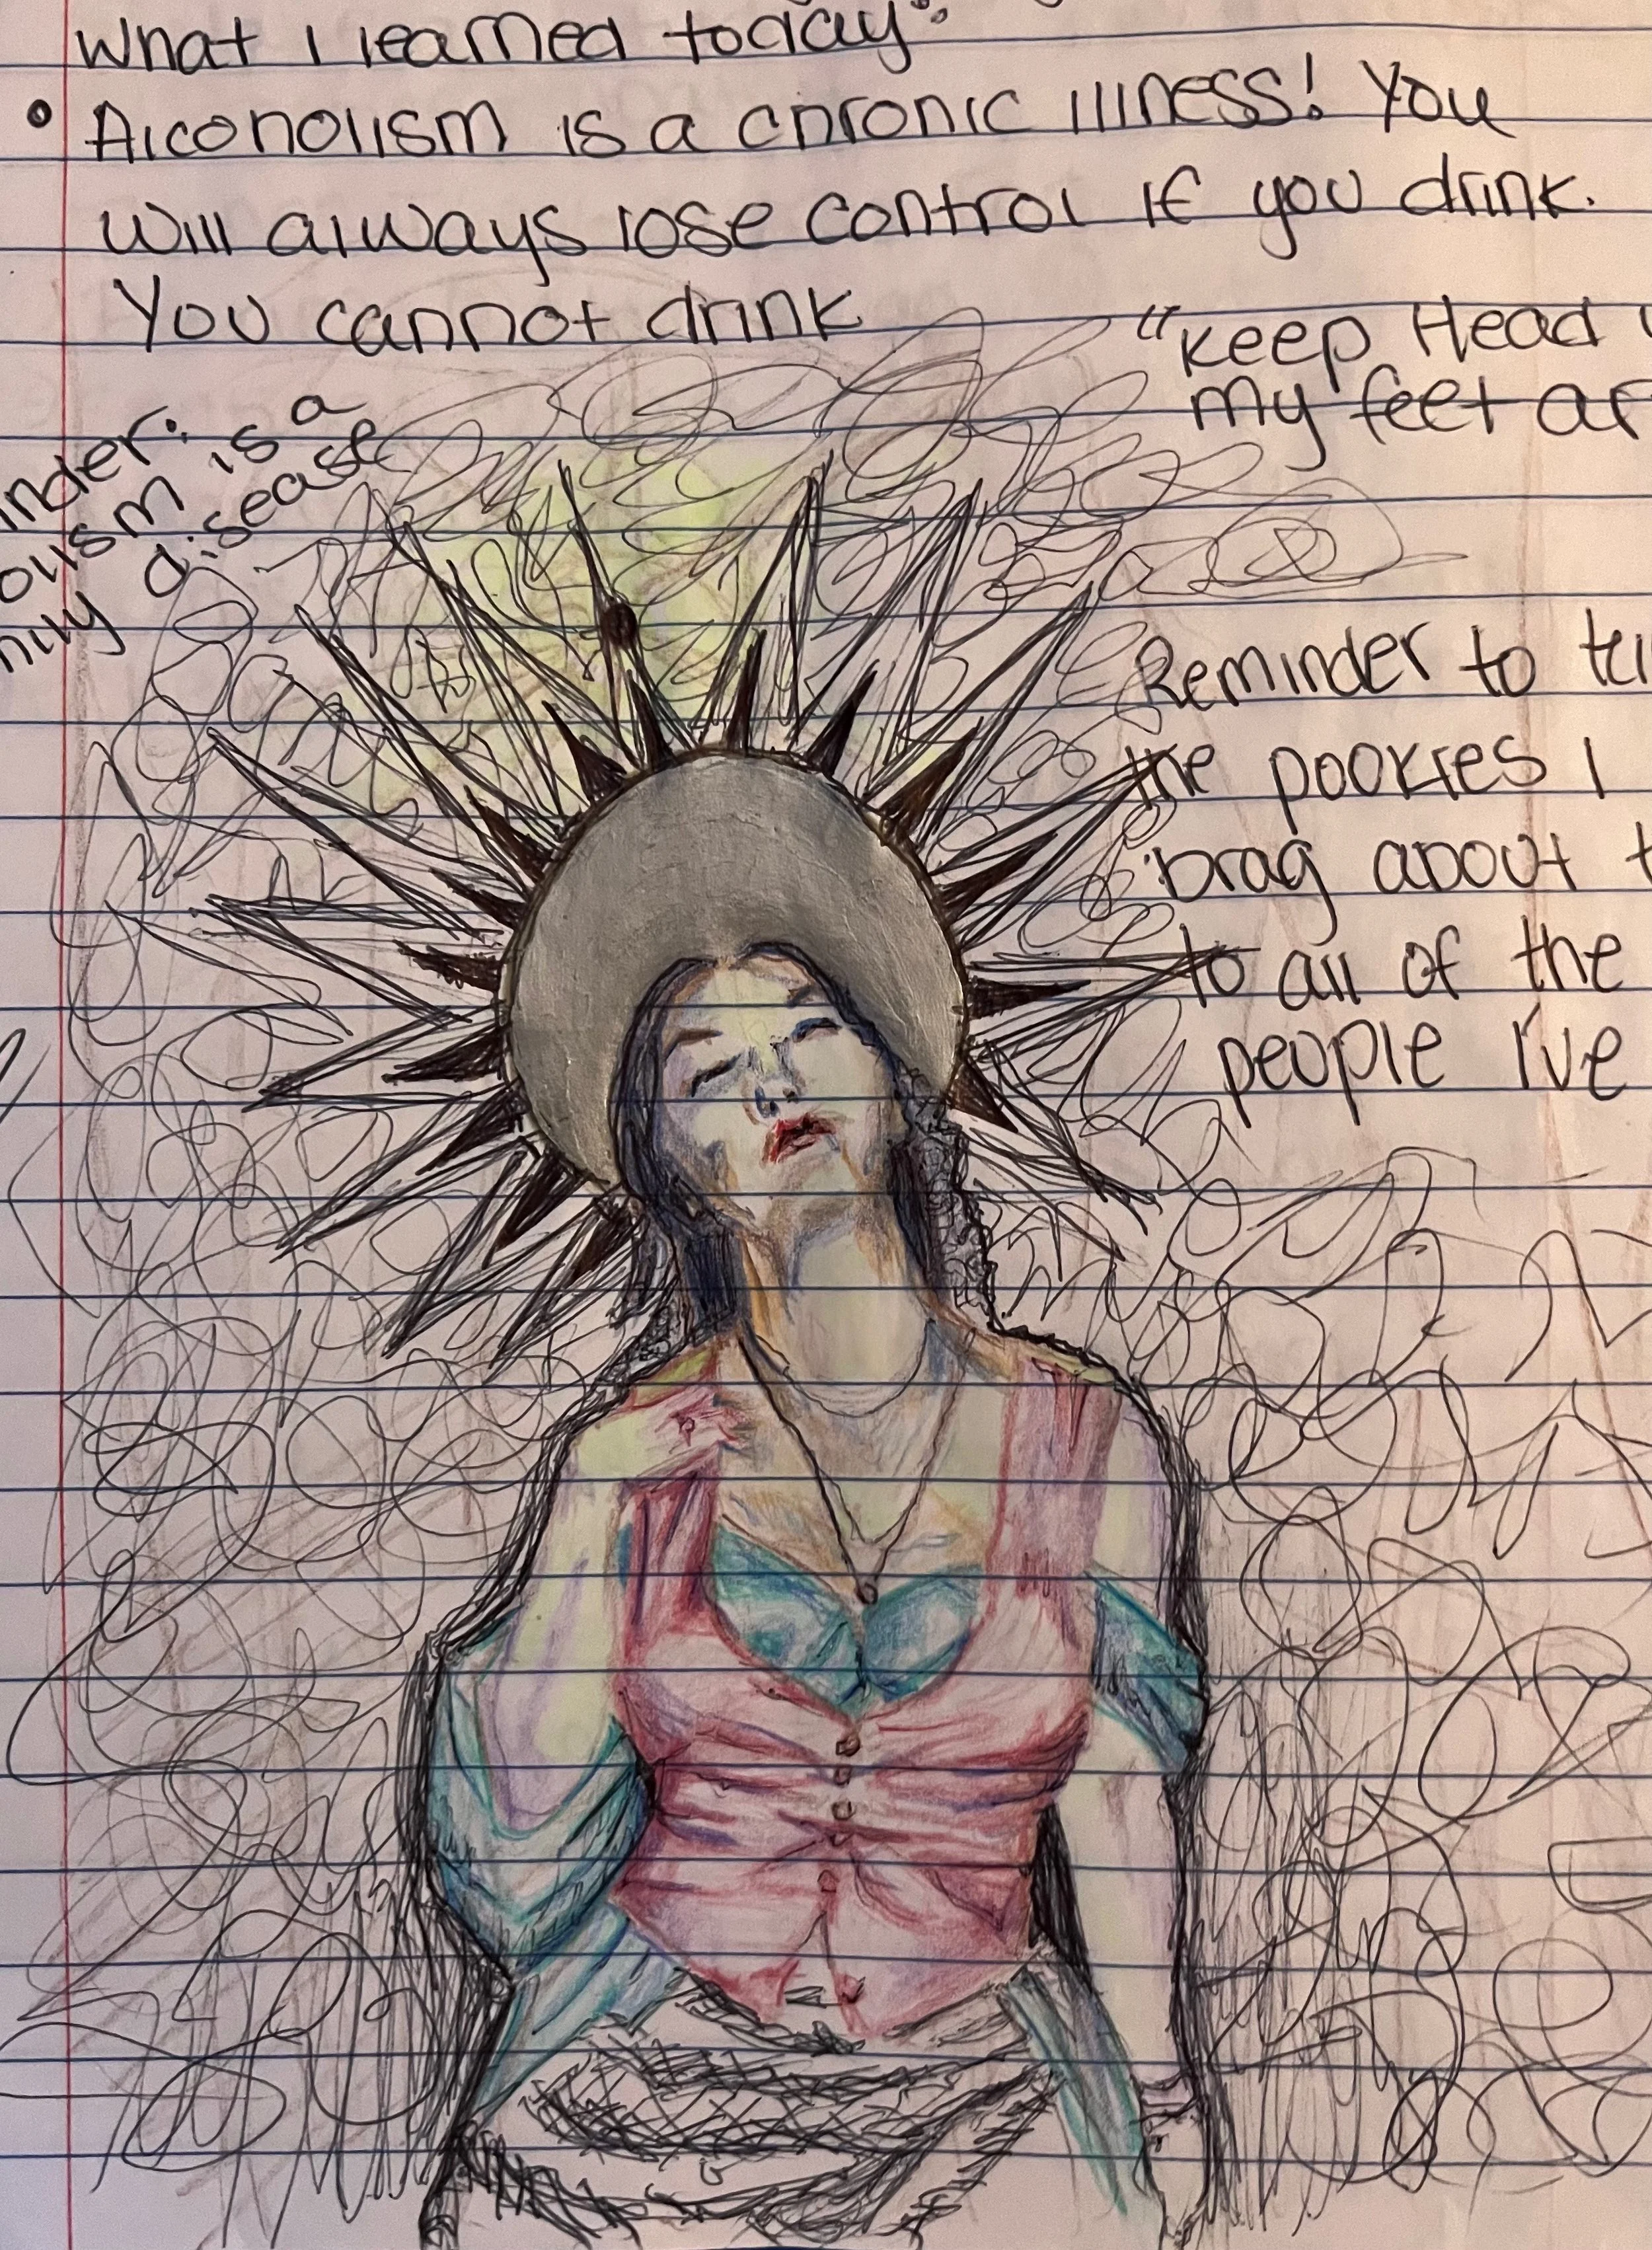 What I learned today:
• Alcoholism is a chronic illness! You
will always lose control if you drink.
You cannot drink
"Keep Head
my feet ar
inder:
olism is a
mily disease
Reminder to tel
the pookies I
brag about t
to all of the
people I've